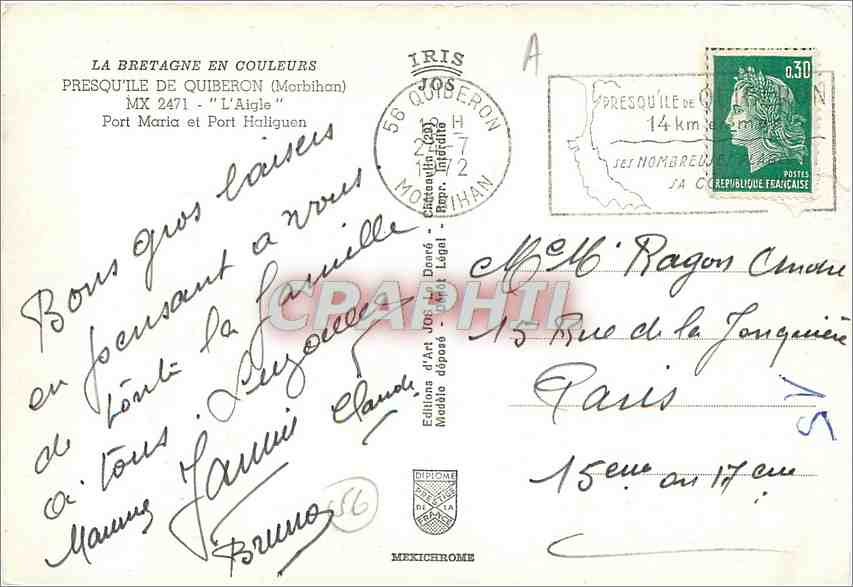 LA BRETAGNE EN COULEURS
PRESQU'ILE DE QUIBERON (Morbihan)
MX 2471 - "L'Aigle"
Port Maria et Port Haliguen
IRIS
JOS
A
56 QUIBERON
18 H
7
1972
MORBIHAN
PRESQU'ILE DE QUIBERON
14 km
SES NOMBREUSES PLAGES
SA
0,30
POSTES
REPUBLIQUE FRANÇAISE
Bons gros baisers
en pensant a vous
de toute la famille
a tous.
Mamy Jannie Claude
Bruno
56
Editions d'Art JOS Le Doaré - Châteaulin (29)
Modèle déposé - Dépôt Légal - Repr. Interdite
CPAPHIL
DIPLOME
PRESTIGE
DE LA
FRANCE
MEXICHROME
Mr Ragon Andre
15 Rue de la Jonquière
Paris
15eme ou 17eme